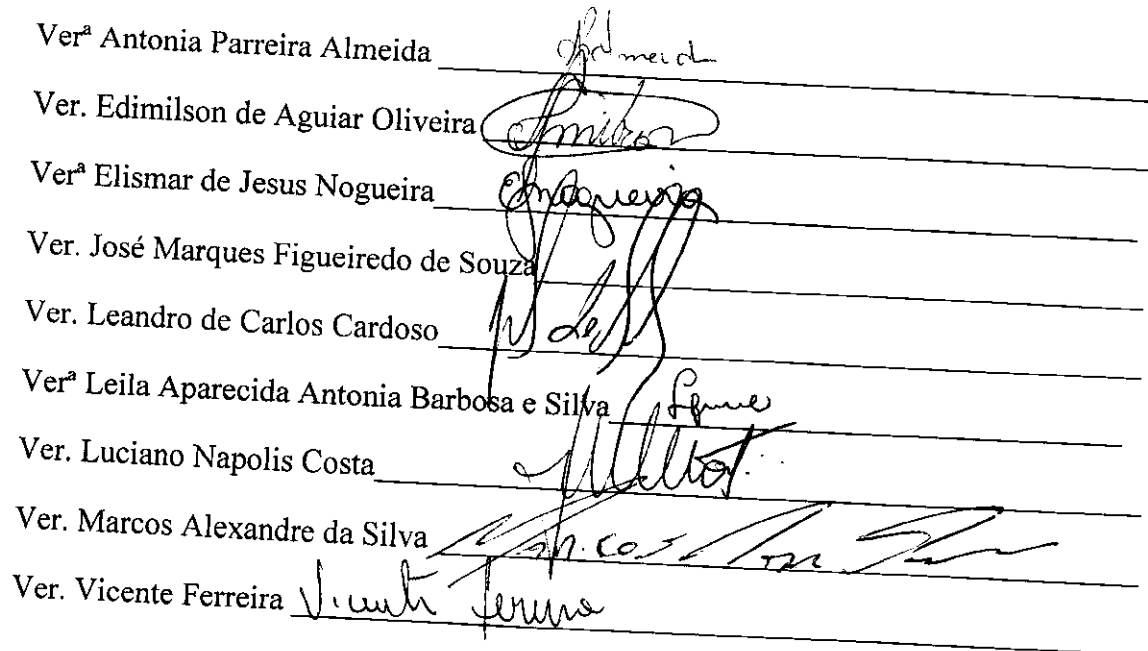 Verª Antonia Parreira Almeida Almeida
Ver. Edimilson de Aguiar Oliveira
Verª Elismar de Jesus Nogueira ENogueira
Ver. José Marques Figueiredo de Souza
Ver. Leandro de Carlos Cardoso
Verª Leila Aparecida Antonia Barbosa e Silva
Ver. Luciano Napolis Costa
Ver. Marcos Alexandre da Silva Marcos
Ver. Vicente Ferreira Vicente Ferreira